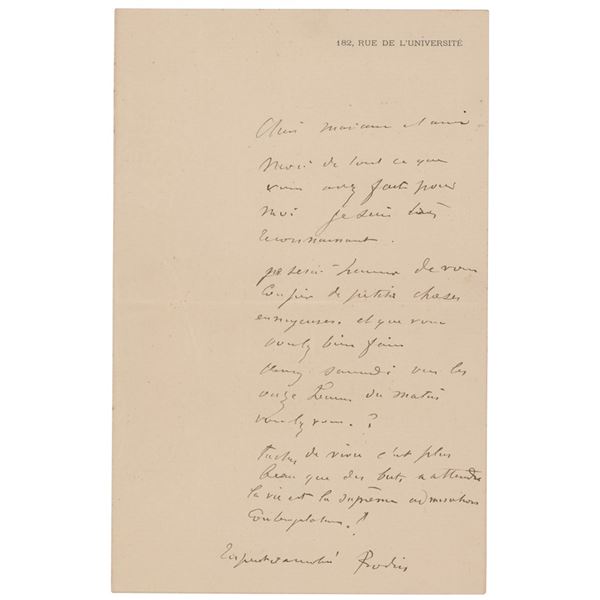 182, RUE DE L'UNIVERSITÉ
Chère madame et amie
Merci de tout ce que
vous avez fait pour
moi je suis très
reconnaissant.
heureux de vous
confier de petites choses
ennuyeuses. et que vous
voulez bien faire
Venez samedi vers les
onze heures du matin
voulez vous. ?
Tachez de vivre c'est plus
beau que des buts a attendre
la vie est la suprême admiration
contemplation. !
Rodin